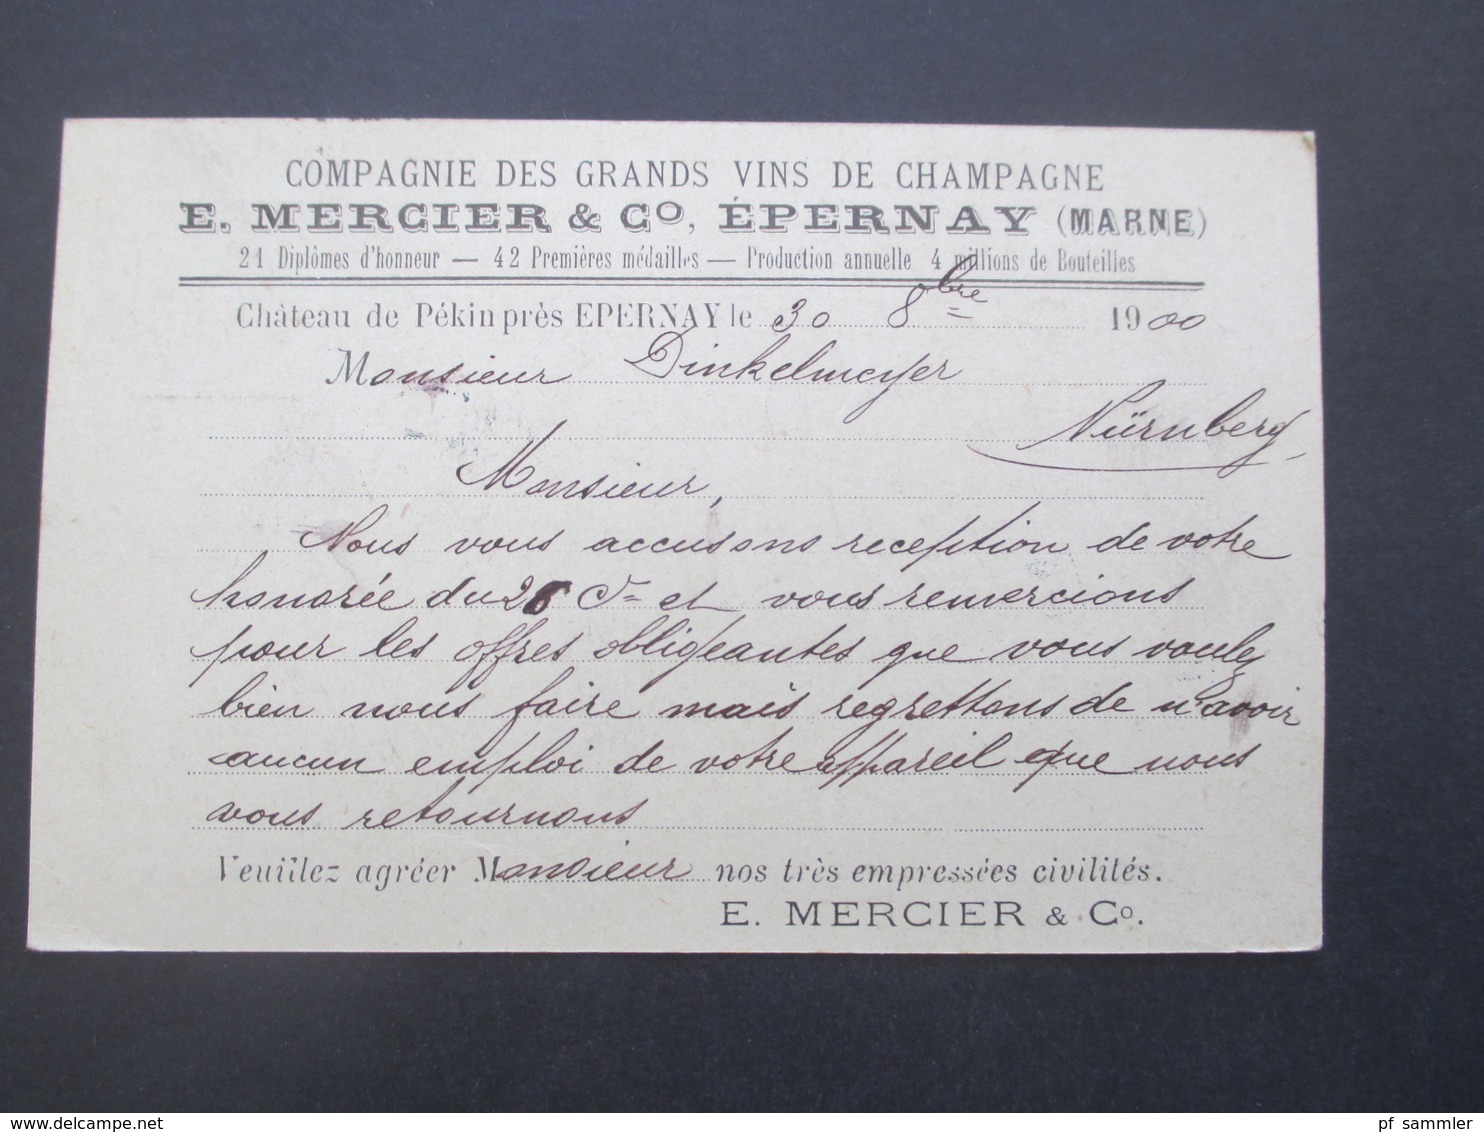 COMPAGNIE DES GRANDS VINS DE CHAMPAGNE
E. MERCIER & Co, ÉPERNAY (MARNE)
21 Diplômes d'honneur — 42 Premières médailles — Production annuelle 4 millions de Bouteilles
Château de Pékin près EPERNAY le 30 8bre 1900
Monsieur Dinkelmeyer
Nürnberg
Monsieur,
Nous vous accusons reception de votre
honorée du 26 Ct et vous remercions
pour les offres obligeantes que vous voulez
bien nous faire mais regrettons de n'avoir
aucun emploi de votre appareil que nous
vous retournons
Veuillez agréer Monsieur nos très empressées civilités.
E. MERCIER & Co.
www.delcampe.net
pf_sammler